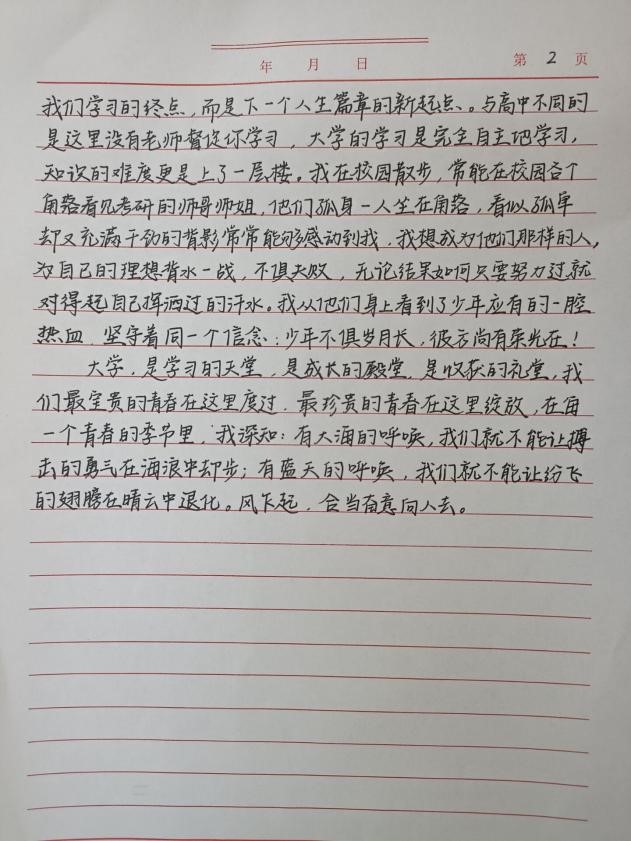 年 月 日 第 2 页
我们学习的终点,而是下一个人生篇章的新起点。与高中不同的
是这里没有老师督促你学习,大学的学习是完全自主地学习,
知识的难度更是上了一层楼。我在校园散步,常能在校园各个
角落看见考研的师哥师姐,他们孤身一人坐在角落,看似孤单
却又充满干劲的背影常常能够感动到我,我想成为他们那样的人,
为自己的理想背水一战,不惧失败,无论结果如何只要努力过就
对得起自己挥洒过的汗水。我从他们身上看到了少年应有的一腔
热血,坚守着同一个信念:少年不惧岁月长,彼方尚有荣光在!
大学,是学习的天堂,是成长的殿堂,是收获的礼堂,我
们最宝贵的青春在这里度过,最珍贵的青春在这里绽放,在每
一个青春的季节里,我深知:有大海的呼唤,我们就不能让搏
击的勇气在海浪中却步;有蓝天的呼唤,我们就不能让纷飞
的翅膀在晴云中退化。风乍起,合当奋意向人去。